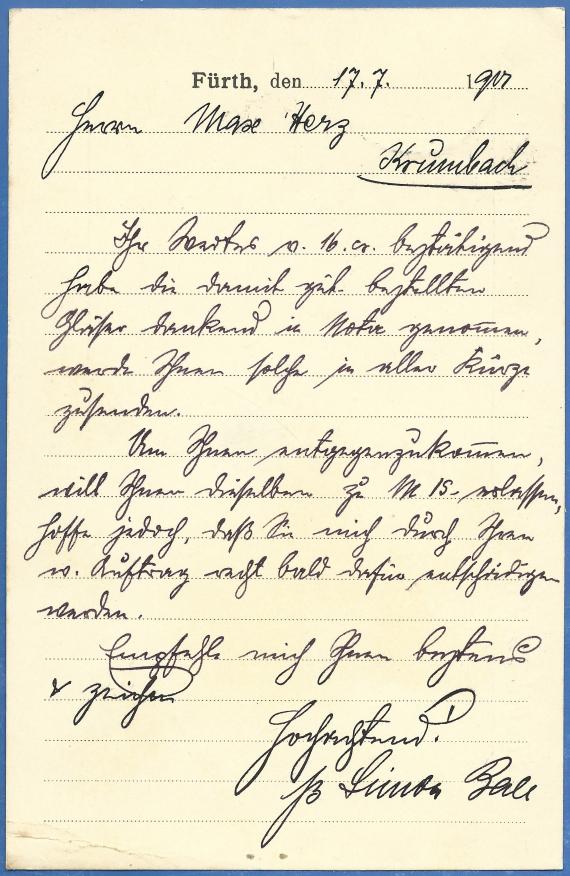 Fürth, den 17. 7. 1901
Herrn Max Herz
Krumbach
Ihr Wertes v. 16. cr. bestätigend
habe die damit güt. bestellten
Gläser dankend in Nota genommen,
werde Ihnen solche in aller Kürze
zusenden.
Um Ihnen entgegenzukommen,
will Ihnen dieselben zu M 15.- erlassen,
hoffe jedoch, daß Sie mich durch Ihren
w. Auftrag recht bald dafür entschädigen
werden.
Empfehle mich Ihnen bestens
& zeichne
Hochachtend!
Simon